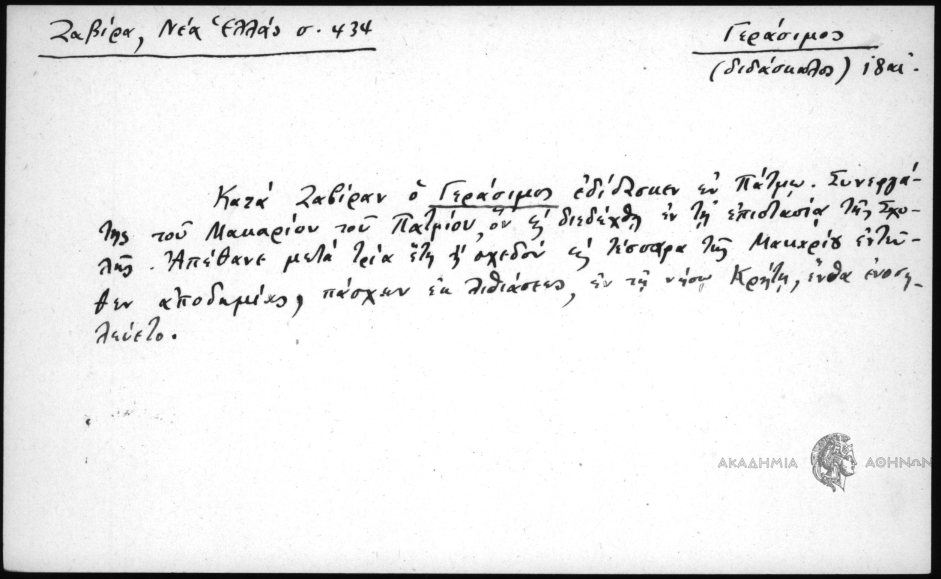 Ζαβίρα, Νέα Ἑλλάς σ. 434
Γεράσιμος
(διδάσκαλος) 18 αἰ.
Κατά Ζαβίραν ὁ Γεράσιμος ἐδίδασκεν ἐν Πάτμῳ. Συνεργά-
της τοῦ Μακαρίου τοῦ Πατμίου, ὅν καί διεδέχθη ἐν τῇ ἐπιστασίᾳ τῆς Σχο-
λῆς. Ἀπέθανε μετά τρία ἔτη ἤ σχεδόν τέσσαρα τῆς Μακαρίου ἐντεῦ-
θεν ἀποδημίας, πάσχων ἐκ λιθιάσεως, ἐν τῇ νήσῳ Κρήτῃ, ἔνθα ἐνοση-
λεύετο.
ΑΚΑΔΗΜΙΑ ΑΘΗΝΩΝ